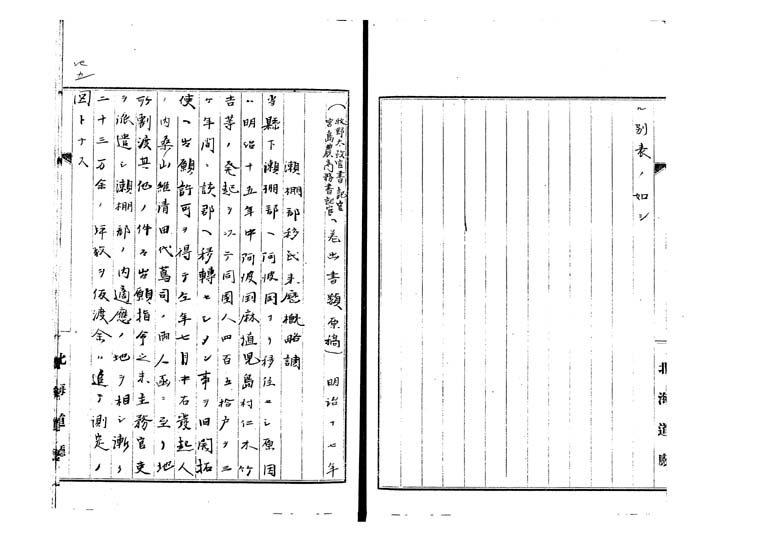 別表ノ如シ
北海道廳
(牧野太政官書記官
宮島農商務書記官ヘ差出書類原稿)明治十七年
瀬棚郡移民来歴概略調
当縣下瀬棚郡ヘ阿波国ヨリ移住セシ原因
ハ明治十五年中阿波国麻植児島村仁木竹
吉等ノ発起ヲ以テ同国人四百五拾戸ヲ三
ケ年間ニ該郡ヘ移轉セシメン事ヲ旧開拓
使ヘ出願許可ヲ得テ仝年七月中右発起人
ノ内桑山維清田代蔦司ノ両人函ニ至リ地
所割渡其他ノ件々出願指令之末主務官吏
ヲ派遣シ瀬棚郡ノ内適應ノ地ヲ相シ漸ク
二十三万余ノ坪数ヲ仮渡余ハ追テ測定ノ
図トナス
北海道廳